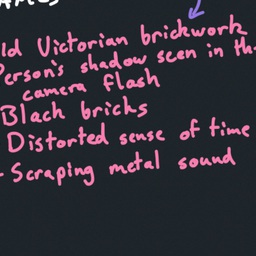 ld Victorian brickwork
erson's shadow seen in th
camera flash
Black bricks
Distorted sense of time
- Scraping metal sound